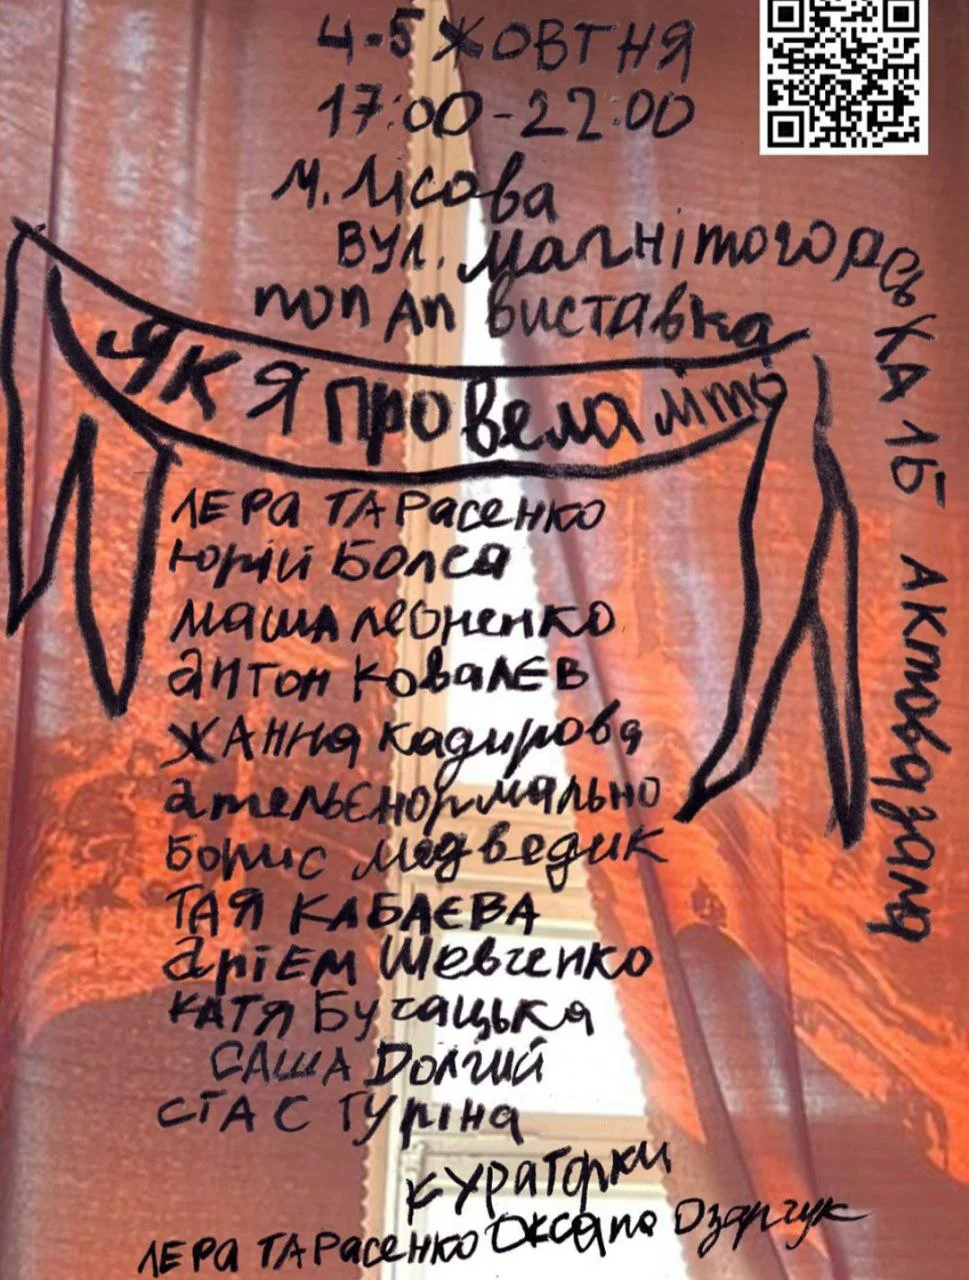 4-5 ЖОВТНЯ
17:00-22:00
м. Лісова
ВУЛ. Магнітогорська 1Б Актовазала
поп Ап виставка
ЯК Я провела літо
ЛЕРА ТАРасенко
Юрій Болса
Маша Леоненко
Антон КовалЄв
ЖАнна Кадирова
АтельЄнормально
Борис Медведик
ТАЯ КАБАЄВА
АртЕм Шевченко
КАТЯ Бучацька
САША Долгий
СТАС Туріна
Кураторки
ЛЕРА ТАРасенко Оксана Озарчук